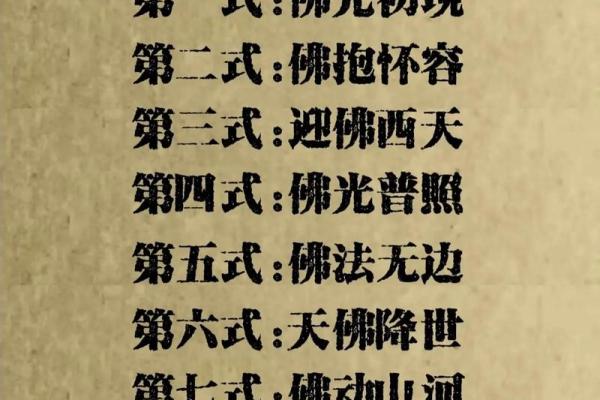 第一式:佛光初现
第二式:佛抱怀容
第三式:迎佛西天
第四式:佛光普照
第五式:佛法无边
第六式:天佛降世
第七式:佛动山河